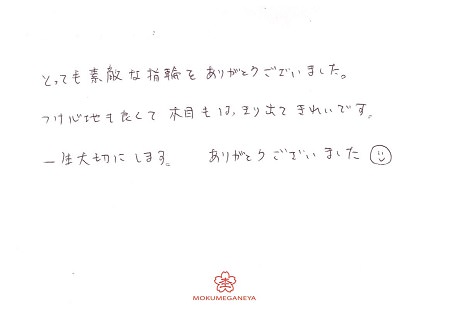 とっても素敵な指輪をありがとうございました。
つけ心地も良くて木目もはっきり出てきれいです。
一生大切にします。 ありがとうございました
MOKUMEGANEYA